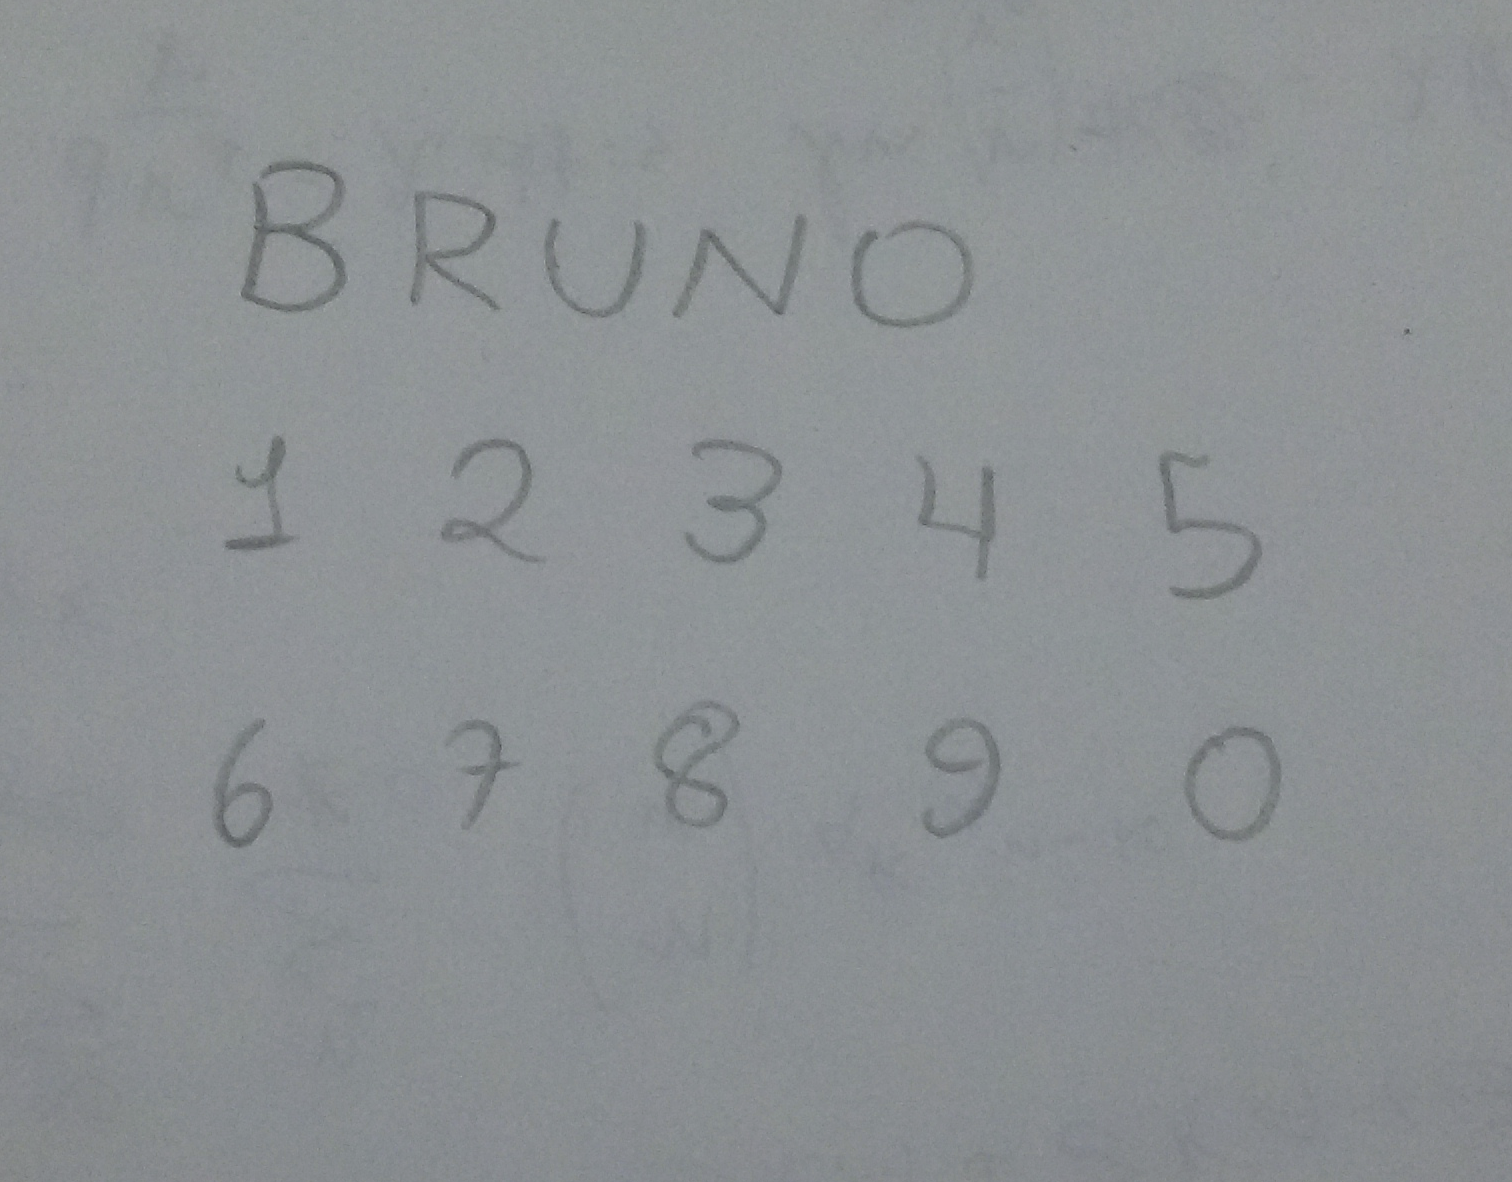 BRUNO
1 2 3 4 5
6 7 8 9 0